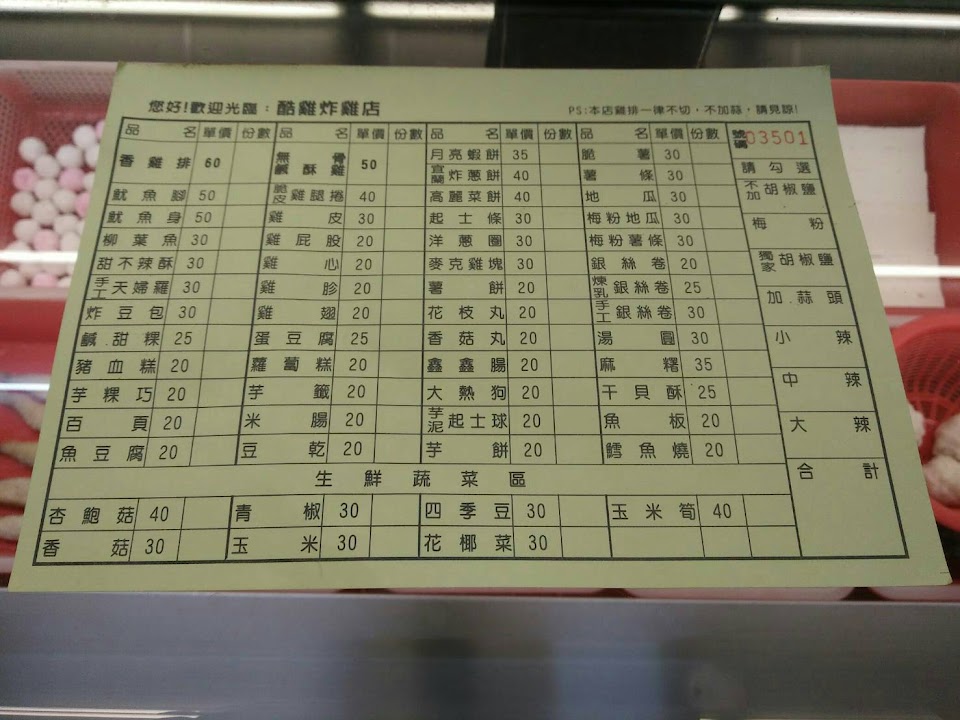 您好!歡迎光臨:酷雞炸雞店 PS:本店雞排一律不切,不加蒜,請見諒!
品名 單價 份數 品名 單價 份數 品名 單價 份數 品名 單價 份數 號碼 03501
香雞排 60 無骨鹹酥雞 50 月亮蝦餅 35 脆薯 30 請勾選
宜蘭炸蔥餅 40 薯條 30 不加胡椒鹽
魷魚腳 50 脆皮雞腿捲 40 高麗菜餅 40 地瓜 30
魷魚身 50 雞皮 30 起士條 30 梅粉地瓜 30 梅粉
柳葉魚 30 雞屁股 20 洋蔥圈 30 梅粉薯條 30
甜不辣酥 30 雞心 20 麥克雞塊 30 銀絲卷 20 獨家胡椒鹽
手工天婦羅 30 雞胗 20 薯餅 20 煉乳銀絲卷 25
炸豆包 30 雞翅 20 花枝丸 20 手工銀絲卷 30 加.蒜頭
鹹.甜粿 25 蛋豆腐 25 香菇丸 20 湯圓 30 小辣
豬血糕 20 蘿蔔糕 20 鑫鑫腸 20 麻糬 35
芋粿巧 20 芋籤 20 大熱狗 20 干貝酥 25 中辣
百頁 20 米腸 20 芋泥起士球 20 魚板 20 大辣
魚豆腐 20 豆乾 20 芋餅 20 鱈魚燒 20
生鮮蔬菜區 合計
杏鮑菇 40 青椒 30 四季豆 30 玉米筍 40
香菇 30 玉米 30 花椰菜 30